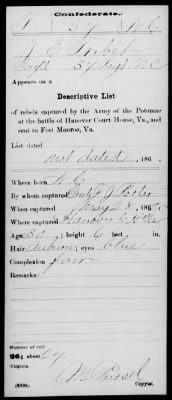 Confederate.
37 N.C.
J. E.
37 Regt N.C.
Appears on a
Descriptive List
of rebels captured by the Army of the Potomac
at the battle of Hanover Court House, Va., and
sent to Fort Monroe, Va.
List dated
not dated, 186 .
Where born N.C.
By whom captured Genl F. J. Porter
When captured May 28, 1862
Where captured Hanover C.H. Va.
Age 30; height 6 feet in.
Hair Auburn; eyes blue
Complexion fair
Remarks:
Number of roll:
26; sheet 27
Virginia.
(639b)
Copyist.